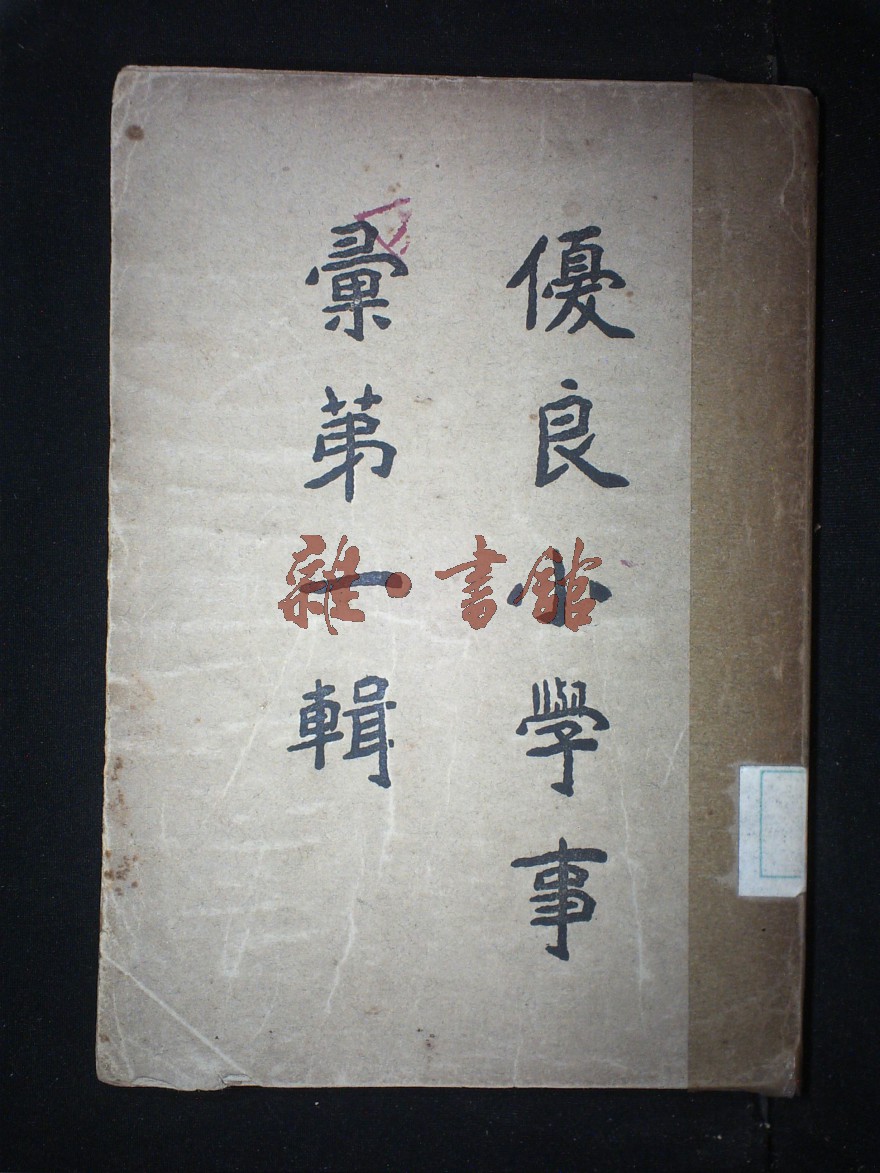 優良小學事
彙苐一輯
雜·書館